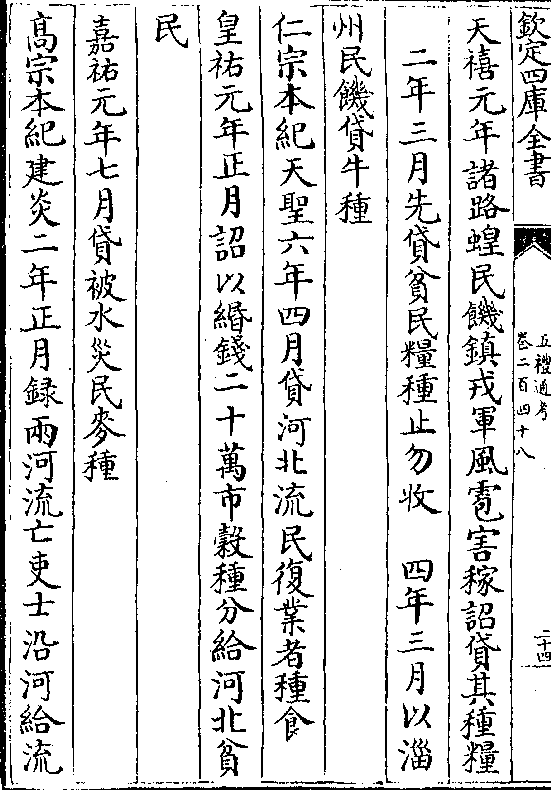 欽定四庫全書
五禮通考
卷二百四十八
二十四
天禧元年諸路蝗民饑鎮戎軍風雹害稼詔貸其種糧
二年三月先貸貧民糧種止勿收　四年三月以淄
州民饑貸牛種
仁宗本紀天聖六年四月貸河北流民復業者種食
皇祐元年正月詔以緡錢二十萬市穀種分給河北貧
民
嘉祐元年七月貸被水災民麥種
髙宗本紀建炎二年正月録兩河流亡吏士沿河給流